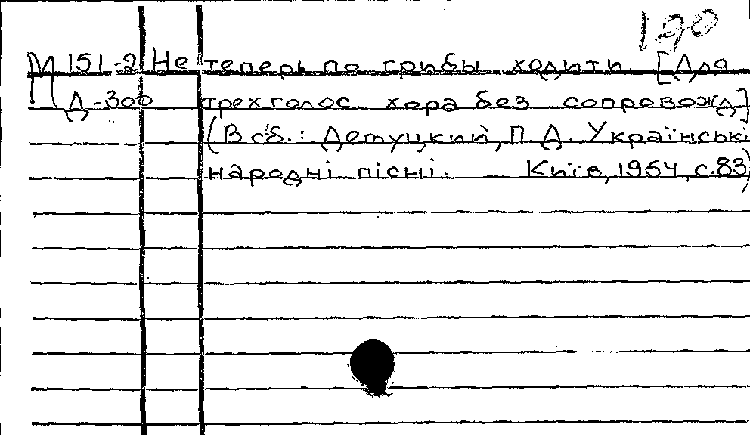 190
М 151-2 Не теперь по грибы ходити [Для
Д-300 трехголос хора без сопровожд]
(В сб.: Демуцкий, П. Д. Українські
народні пісні. – Київ, 1954, с. 83)